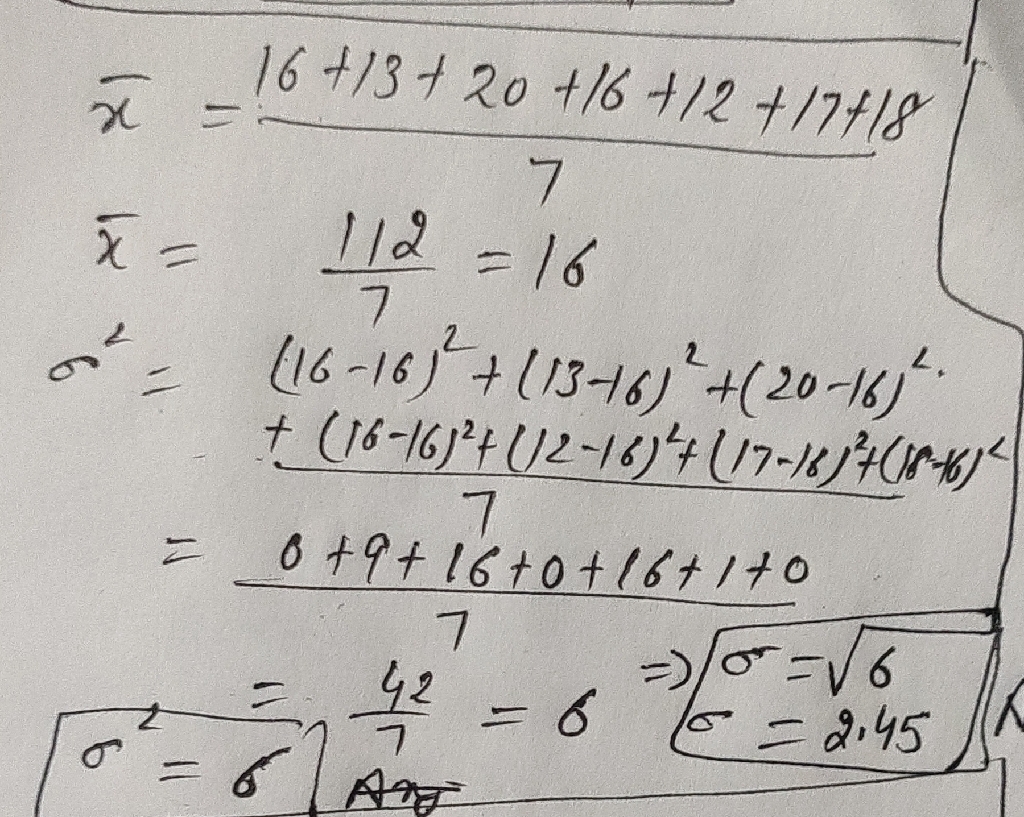 x̄ = 16 + 13 + 20 + 16 + 12 + 17 + 18
7
x̄ = 112/7 = 16
σ² = (16-16)² + (13-16)² + (20-16)²
+ (16-16)² + (12-16)² + (17-16)² + (18-16)²
7
= 0 + 9 + 16 + 0 + 16 + 1 + 0
7
= 42/7 = 6 ⇒ σ = √6
σ = 2.45
σ² = 6 Ans